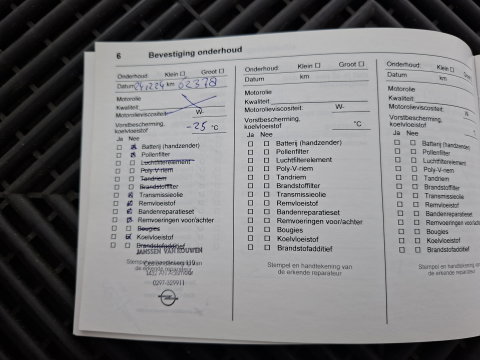 6 Bevestiging onderhoud
Onderhoud: Klein ☐ Groot ☐
Datum 24-12-24 km 62378
Motorolie
Kwaliteit
Motorolieviscositeit: W-
Vorstbescherming,
koelvloeistof -25 °C
Ja Nee
Batterij (handzender)
Pollenfilter
Luchtfilterelement
Poly-V-riem
Tandriem
Brandstoffilter
Transmissieolie
Remvloeistof
Bandenreparatieset
Remvoeringen voor/achter
Bougies
Koelvloeistof
Brandstofadditief
JANSSEN VAN KOUWEN
Stempel en handtekening van
de erkende reparateur
0297-329911
Onderhoud: Klein ☐ Groot ☐
Datum km
Motorolie
Kwaliteit
Motorolieviscositeit: W-
Vorstbescherming,
koelvloeistof °C
Ja Nee
Batterij (handzender)
Pollenfilter
Luchtfilterelement
Poly-V-riem
Tandriem
Brandstoffilter
Transmissieolie
Remvloeistof
Bandenreparatieset
Remvoeringen voor/achter
Bougies
Koelvloeistof
Brandstofadditief
Stempel en handtekening van
de erkende reparateur
Onderhoud: Klein ☐
Datum km
Motorolie
Kwaliteit
Motorolieviscositeit:
Vorstbescherming,
koelvloeistof
Ja Nee
Batterij (handzender)
Pollenfilter
Luchtfilterelement
Poly-V-riem
Tandriem
Brandstoffilter
Transmissieolie
Remvloeistof
Bandenreparatieset
Remvoeringen voor/
Bougies
Koelvloeistof
Brandstofadditief
Stempel en handtekening
de erkende reparateur